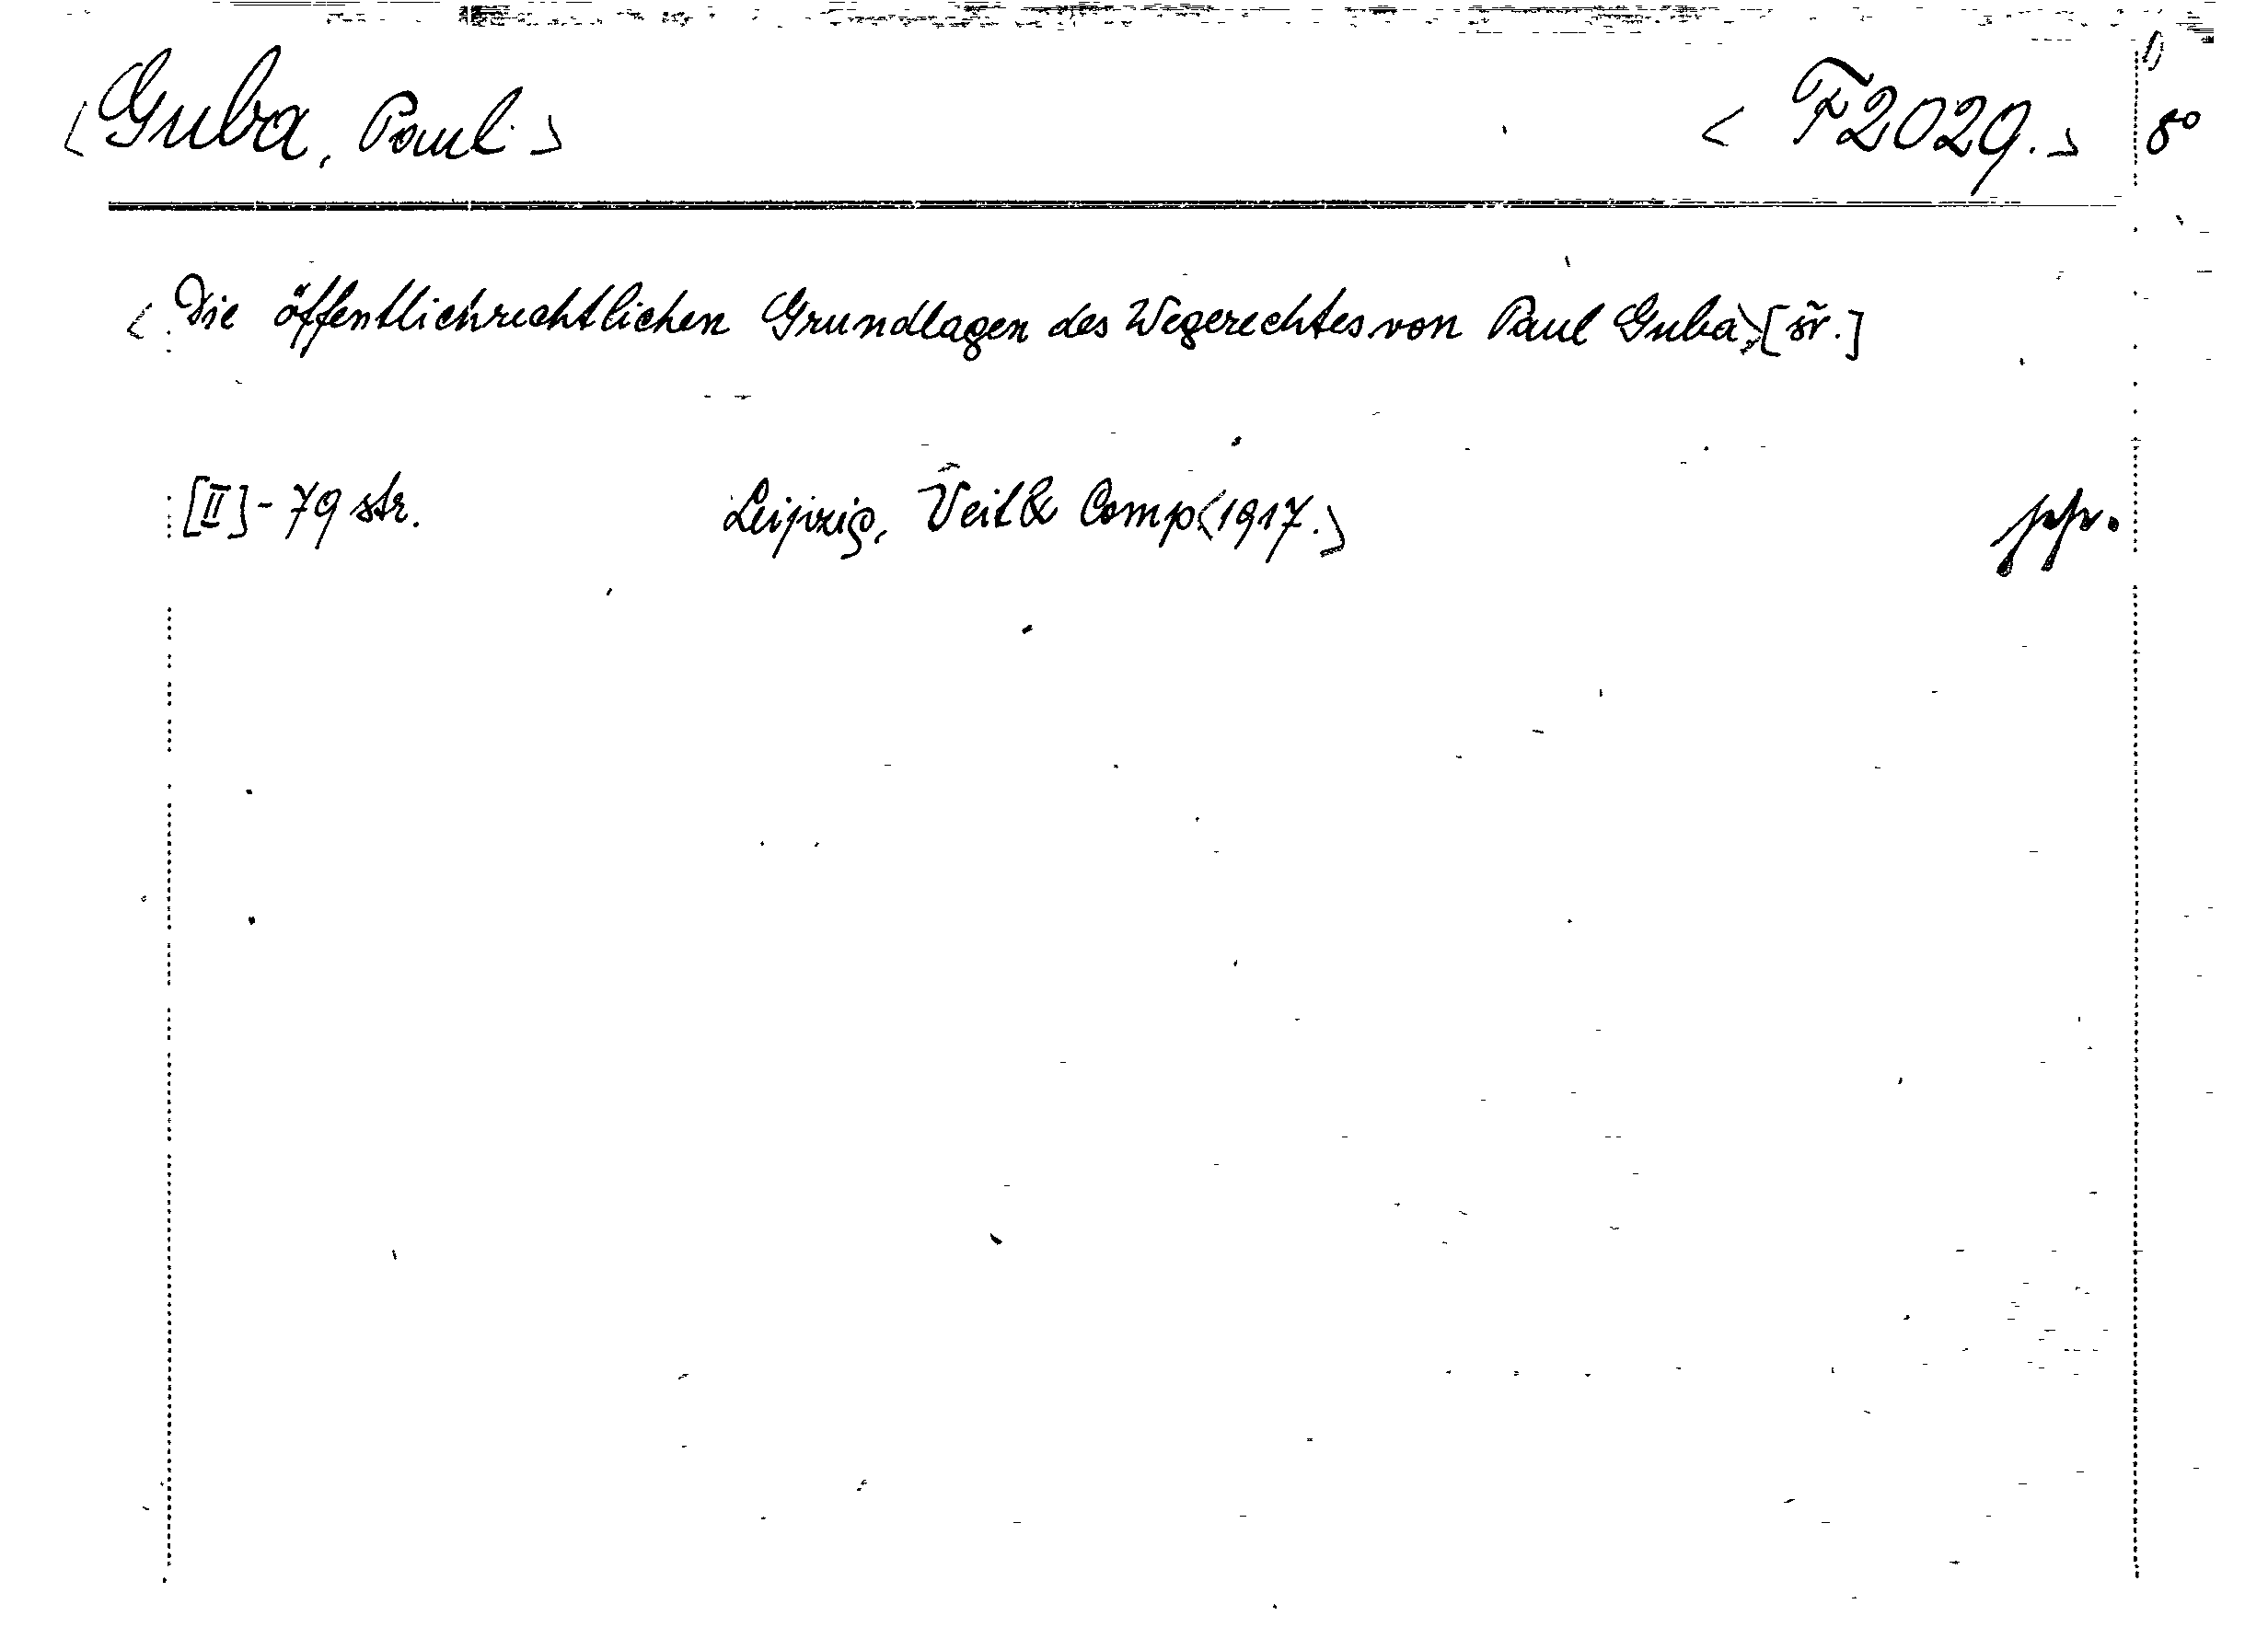 <Guba, Paul> <F2029.> 8°
<Die öffentlichrechtlichen Grundlagen des Wegerechtes von Paul Guba>, [šv.]
[II] - 79 str. Leipzig, Veit & Comp <1917.> ppr.